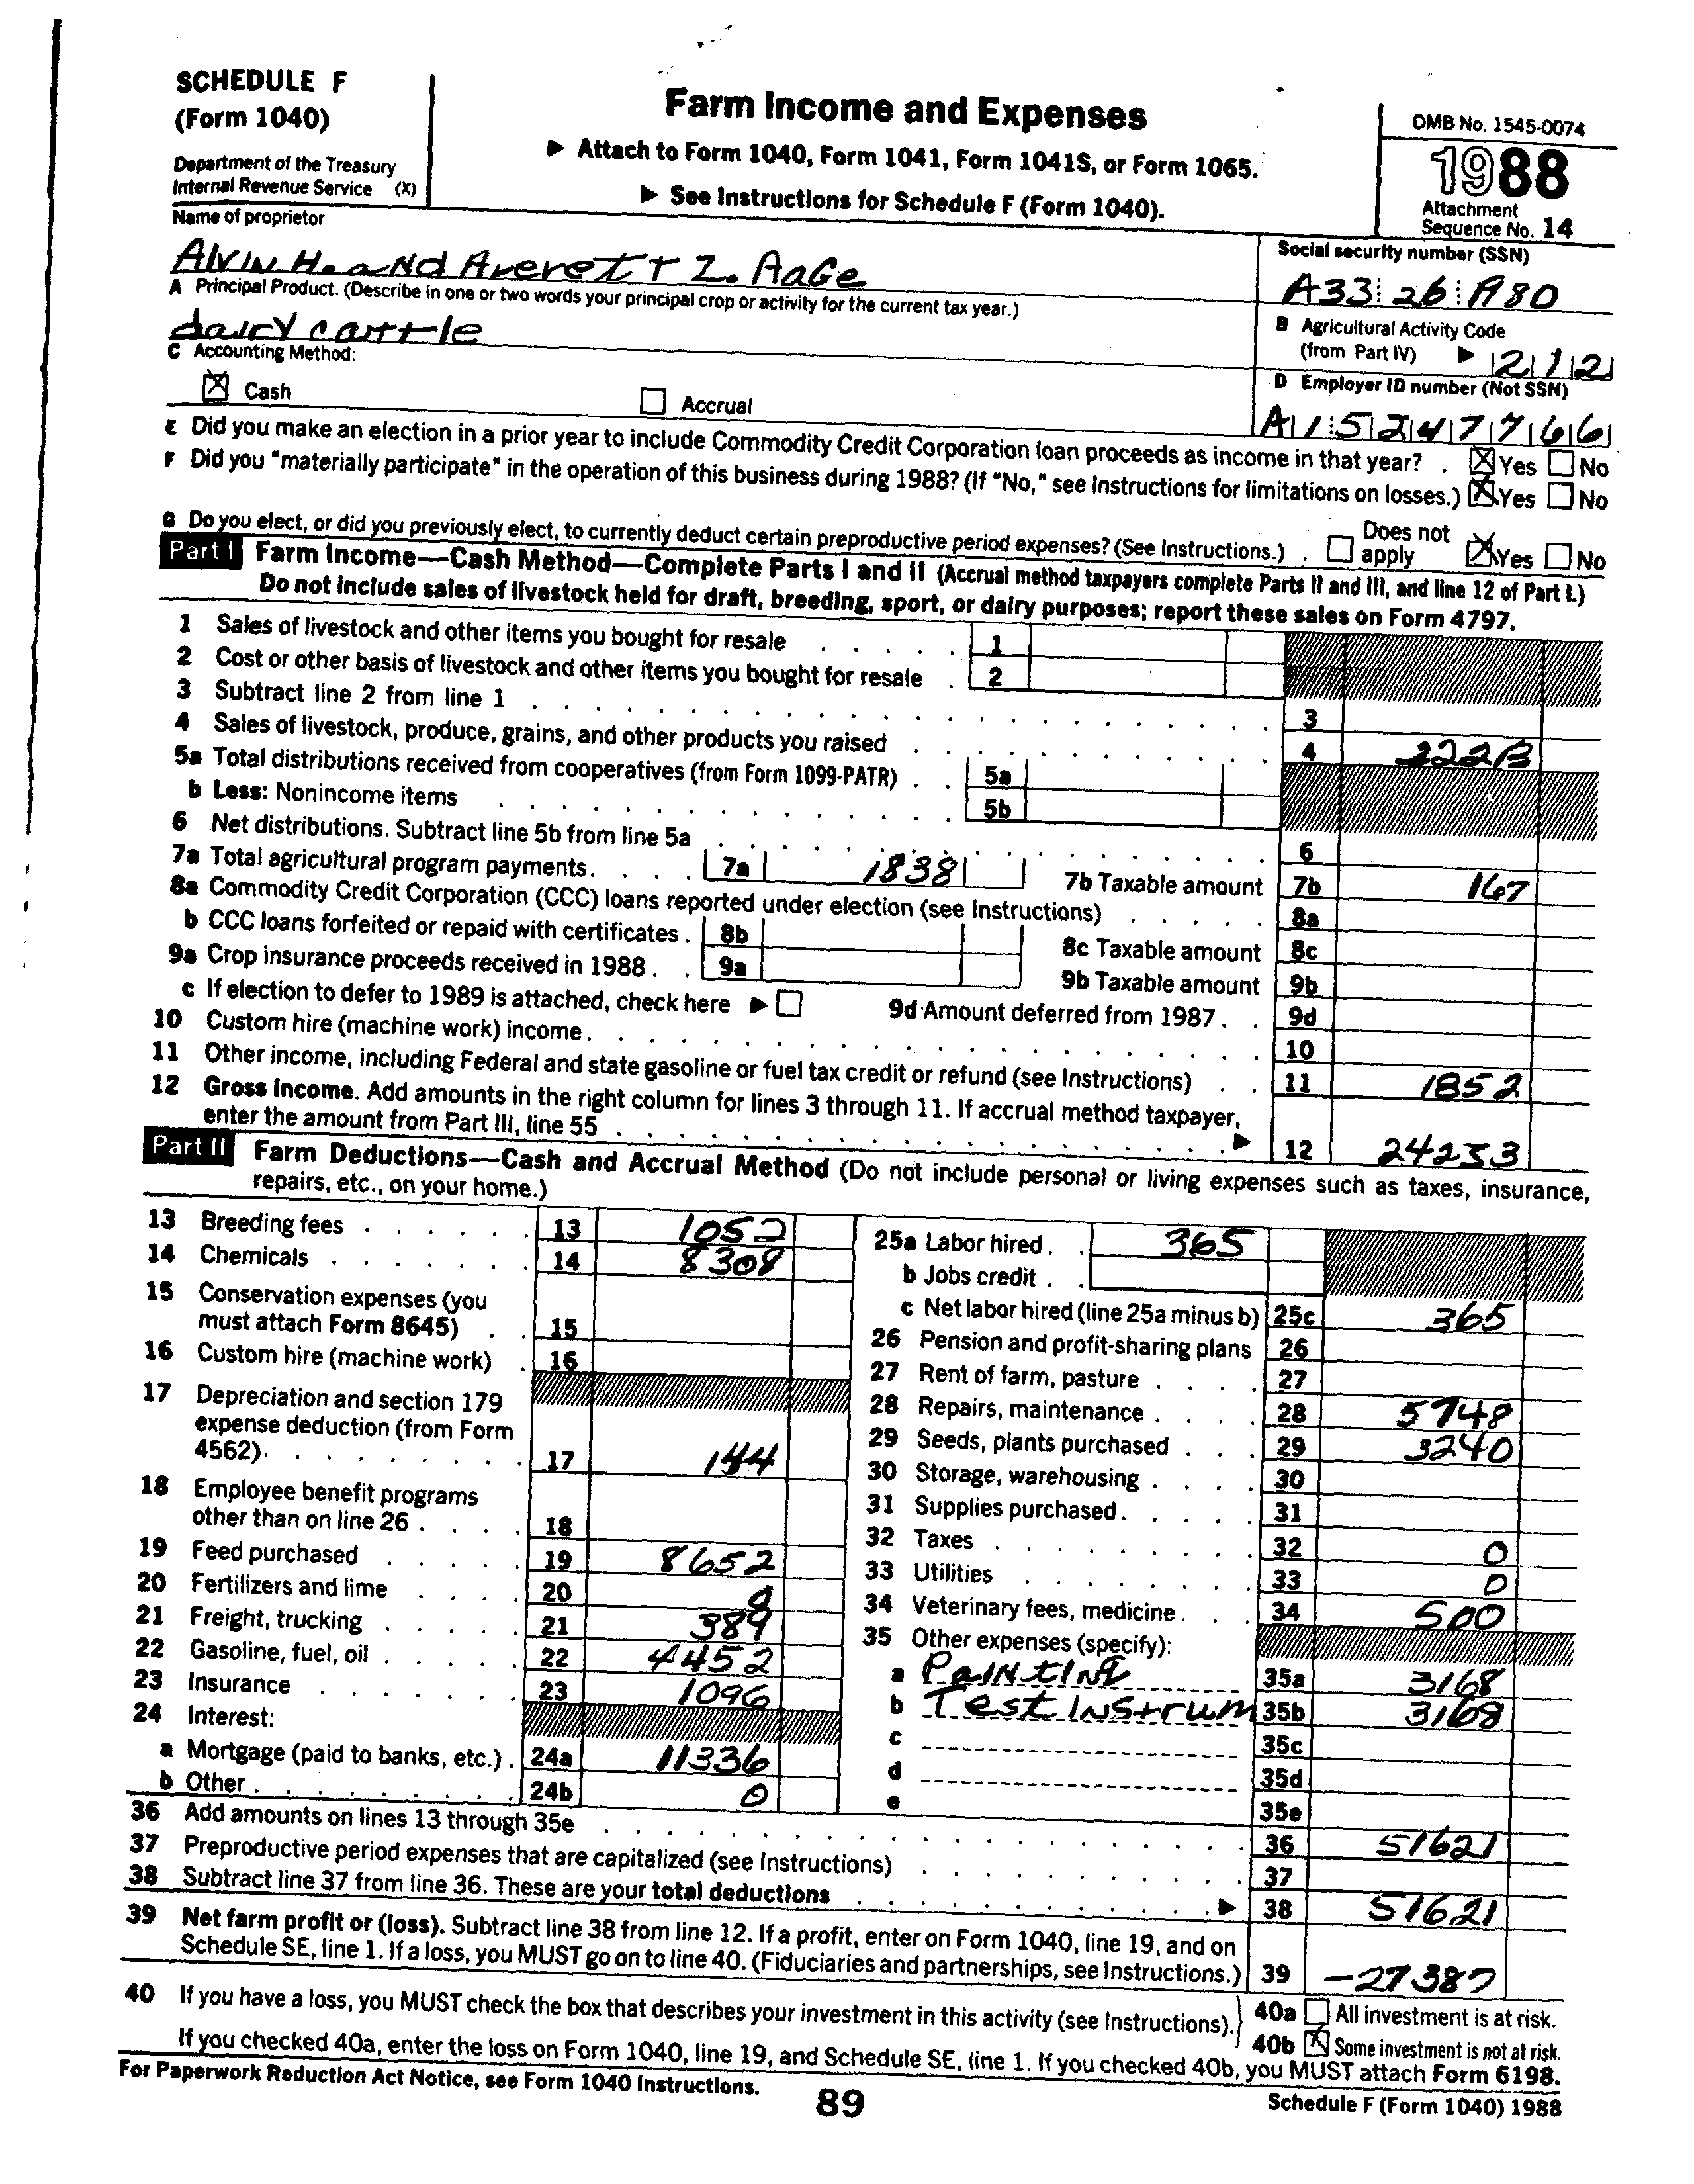 SCHEDULE F
(Form 1040)
Department of the Treasury
Internal Revenue Service (X)
Farm Income and Expenses
▶ Attach to Form 1040, Form 1041, Form 1041S, or Form 1065.
▶ See Instructions for Schedule F (Form 1040).
OMB No. 1545-0074
1988
Attachment
Sequence No. 14
Name of proprietor
Alvin H. and Averett Z. Aage
Social security number (SSN)
A33 26 A80
A Principal Product. (Describe in one or two words your principal crop or activity for the current tax year.)
dairy cattle
B Agricultural Activity Code
(from Part IV) ▶ 212
C Accounting Method:
☒ Cash ☐ Accrual
D Employer ID number (Not SSN)
A1 5247766
E Did you make an election in a prior year to include Commodity Credit Corporation loan proceeds as income in that year? . ☒ Yes ☐ No
F Did you "materially participate" in the operation of this business during 1988? (If "No," see Instructions for limitations on losses.) ☒ Yes ☐ No
G Do you elect, or did you previously elect, to currently deduct certain preproductive period expenses? (See Instructions.) . ☐ Does not apply ☒ Yes ☐ No
Part I Farm Income—Cash Method—Complete Parts I and II (Accrual method taxpayers complete Parts II and III, and line 12 of Part I.)
Do not include sales of livestock held for draft, breeding, sport, or dairy purposes; report these sales on Form 4797.
1 Sales of livestock and other items you bought for resale 1
2 Cost or other basis of livestock and other items you bought for resale 2
3 Subtract line 2 from line 1 3
4 Sales of livestock, produce, grains, and other products you raised 4
5a Total distributions received from cooperatives (from Form 1099-PATR) 5a
b Less: Nonincome items 5b
6 Net distributions. Subtract line 5b from line 5a 6
7a Total agricultural program payments. 7a 1838 7b Taxable amount 7b 167
8a Commodity Credit Corporation (CCC) loans reported under election (see Instructions) 8a
b CCC loans forfeited or repaid with certificates . 8b 8c Taxable amount 8c
9a Crop insurance proceeds received in 1988 . 9a 9b Taxable amount 9b
c If election to defer to 1989 is attached, check here ▶ ☐ 9d Amount deferred from 1987 . . 9d
10 Custom hire (machine work) income . 10
11 Other income, including Federal and state gasoline or fuel tax credit or refund (see Instructions) 11 1852
12 Gross income. Add amounts in the right column for lines 3 through 11. If accrual method taxpayer,
enter the amount from Part III, line 55 ▶ 12 24233
Part II Farm Deductions—Cash and Accrual Method (Do not include personal or living expenses such as taxes, insurance,
repairs, etc., on your home.)
13 Breeding fees 13 1052
14 Chemicals 14 8308
15 Conservation expenses (you
must attach Form 8645) 15
16 Custom hire (machine work) 16
17 Depreciation and section 179
expense deduction (from Form
4562). 17 144
18 Employee benefit programs
other than on line 26 . 18
19 Feed purchased 19 8652
20 Fertilizers and lime 20 0
21 Freight, trucking 21 389
22 Gasoline, fuel, oil 22 4452
23 Insurance 23 1096
24 Interest:
a Mortgage (paid to banks, etc.) . 24a 11336
b Other . 24b 0
25a Labor hired . 365
b Jobs credit .
c Net labor hired (line 25a minus b) 25c 365
26 Pension and profit-sharing plans 26
27 Rent of farm, pasture 27
28 Repairs, maintenance 28 5748
29 Seeds, plants purchased 29 3240
30 Storage, warehousing 30
31 Supplies purchased 31
32 Taxes 32 0
33 Utilities 33 0
34 Veterinary fees, medicine . 34 500
35 Other expenses (specify):
a Painting 35a 3168
b Test Instrum 35b 3168
c 35c
d 35d
e 35e
36 Add amounts on lines 13 through 35e 36 51621
37 Preproductive period expenses that are capitalized (see Instructions) 37
38 Subtract line 37 from line 36. These are your total deductions ▶ 38 51621
39 Net farm profit or (loss). Subtract line 38 from line 12. If a profit, enter on Form 1040, line 19, and on
Schedule SE, line 1. If a loss, you MUST go on to line 40. (Fiduciaries and partnerships, see Instructions.) 39 -27387
40 If you have a loss, you MUST check the box that describes your investment in this activity (see Instructions). 40a ☐ All investment is at risk.
40b ☒ Some investment is not at risk.
If you checked 40a, enter the loss on Form 1040, line 19, and Schedule SE, line 1. If you checked 40b, you MUST attach Form 6198.
For Paperwork Reduction Act Notice, see Form 1040 Instructions.
89
Schedule F (Form 1040) 1988